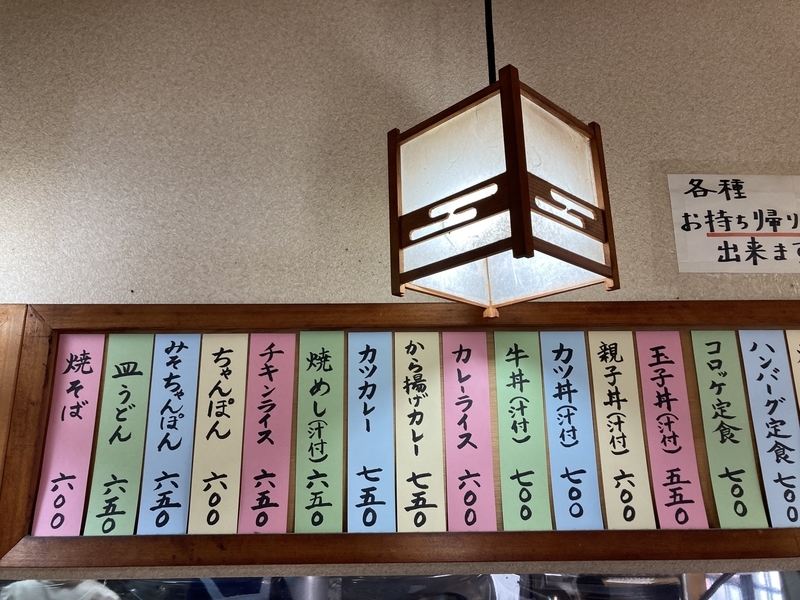 各種
お持ち帰り
出来ます
焼そば 六〇〇
皿うどん 六五〇
みそちゃんぽん 六五〇
ちゃんぽん 六〇〇
チキンライス 六五〇
焼めし(汁付) 六五〇
カツカレー 七五〇
から揚げカレー 七五〇
カレーライス 六〇〇
牛丼(汁付) 七〇〇
カツ丼(汁付) 七〇〇
親子丼(汁付) 六〇〇
玉子丼(汁付) 五五〇
コロッケ定食 七〇〇
ハンバーグ定食 七〇〇